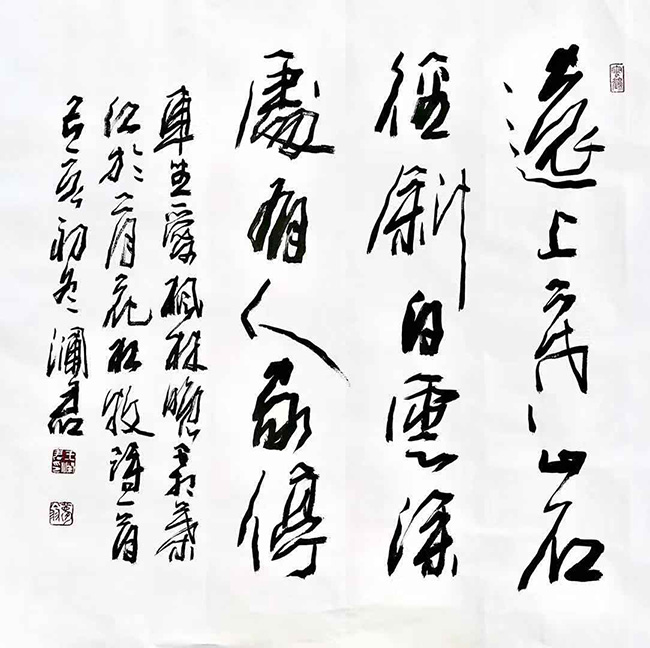 遠上寒山石
徑斜白雲深
處有人家停
車坐愛楓林晚霜葉
紅於二月花杜牧詩一首
初冬瀾